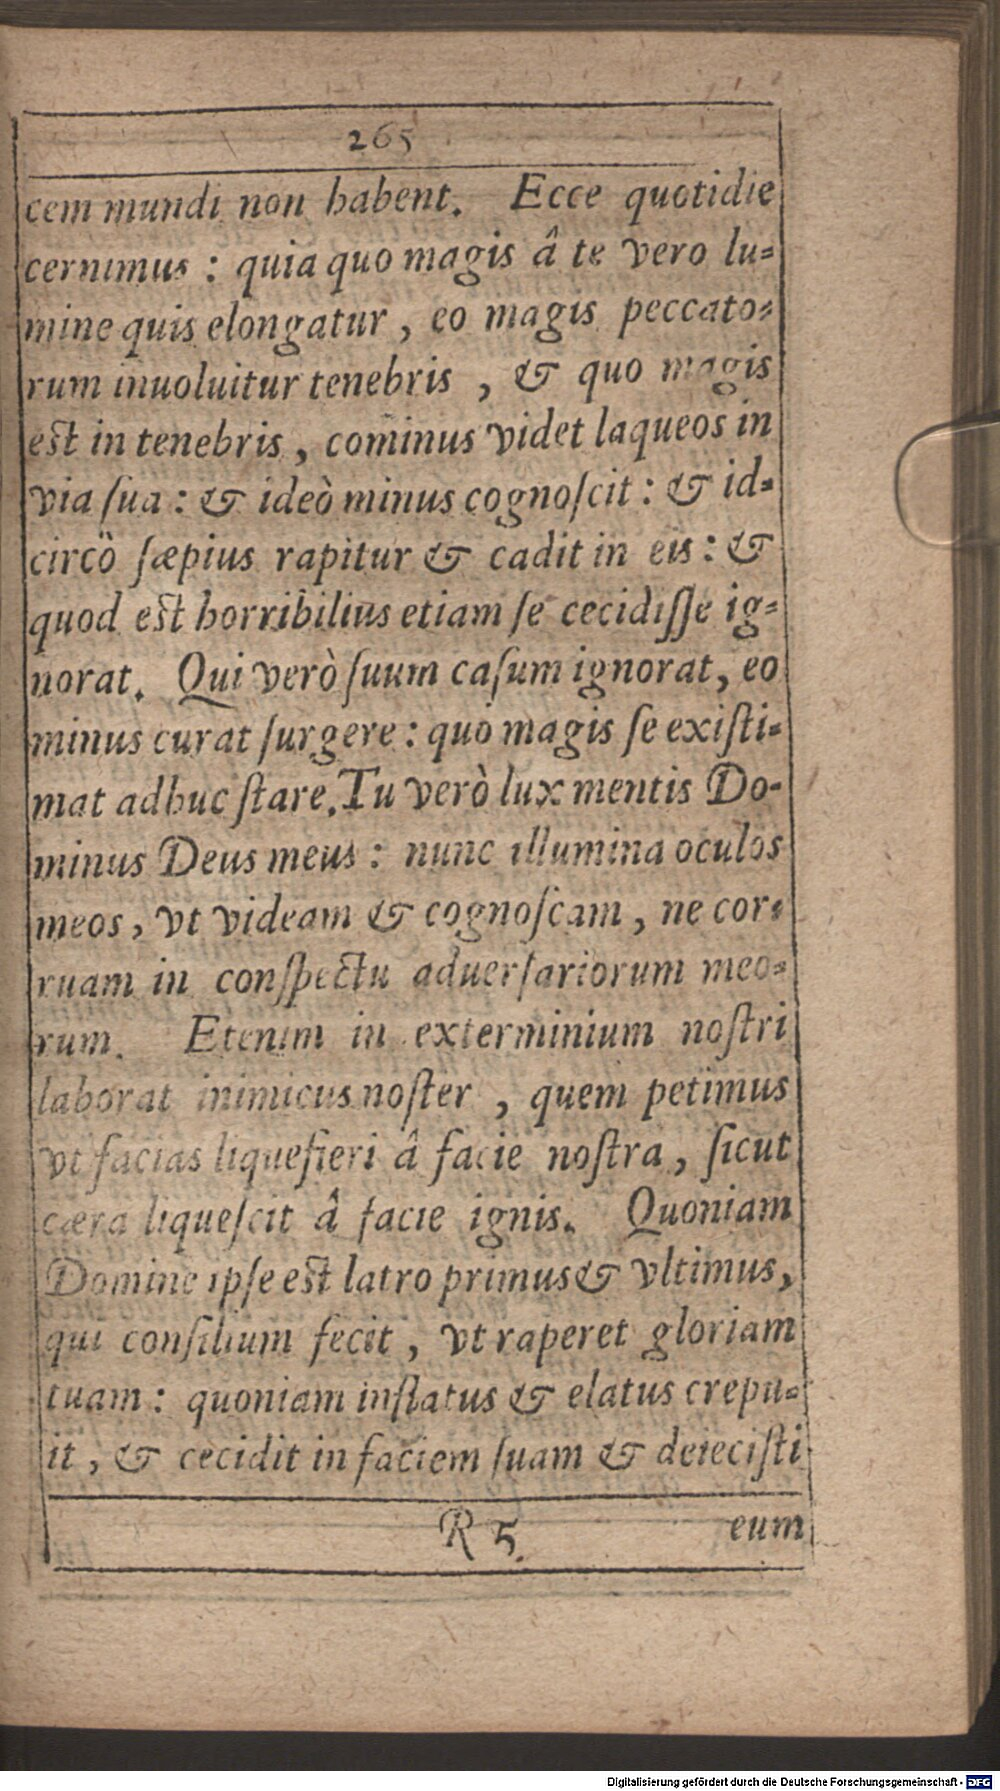 265
cem mundi non habent. Ecce quotidie
cernimus : quia quo magis â te vero lu-
mine quis elongatur, eo magis peccato-
rum inuoluitur tenebris, & quo magis
est in tenebris, cominus videt laqueos in
via ſua : & ideò minus cognoſcit : & id-
circò ſæpius rapitur & cadit in eis : &
quod est horribilius etiam ſe cecidiſſe ig-
norat. Qui verò ſuum caſum ignorat, eo
minus curat ſurgere : quo magis ſe exiſti-
mat adhuc ſtare. Tu verò lux mentis Do-
minus Deus meus : nunc illumina oculos
meos, vt videam & cognoſcam, ne cor-
ruam in conſpectu aduerſariorum meo-
rum. Etenim in exterminium noſtri
laborat inimicus noſter, quem petimus
vt facias liquefieri â facie noſtra, ſicut
cæra liqueſcit â facie ignis. Quoniam
Domine ipſe est latro primus & vltimus,
qui conſilium fecit, vt raperet gloriam
tuam : quoniam inflatus & elatus crepu-
it, & cecidit in faciem ſuam & deieciſti
R 5.
eum
Digitalisierung gefördert durch die Deutsche Forschungsgemeinschaft - DFG